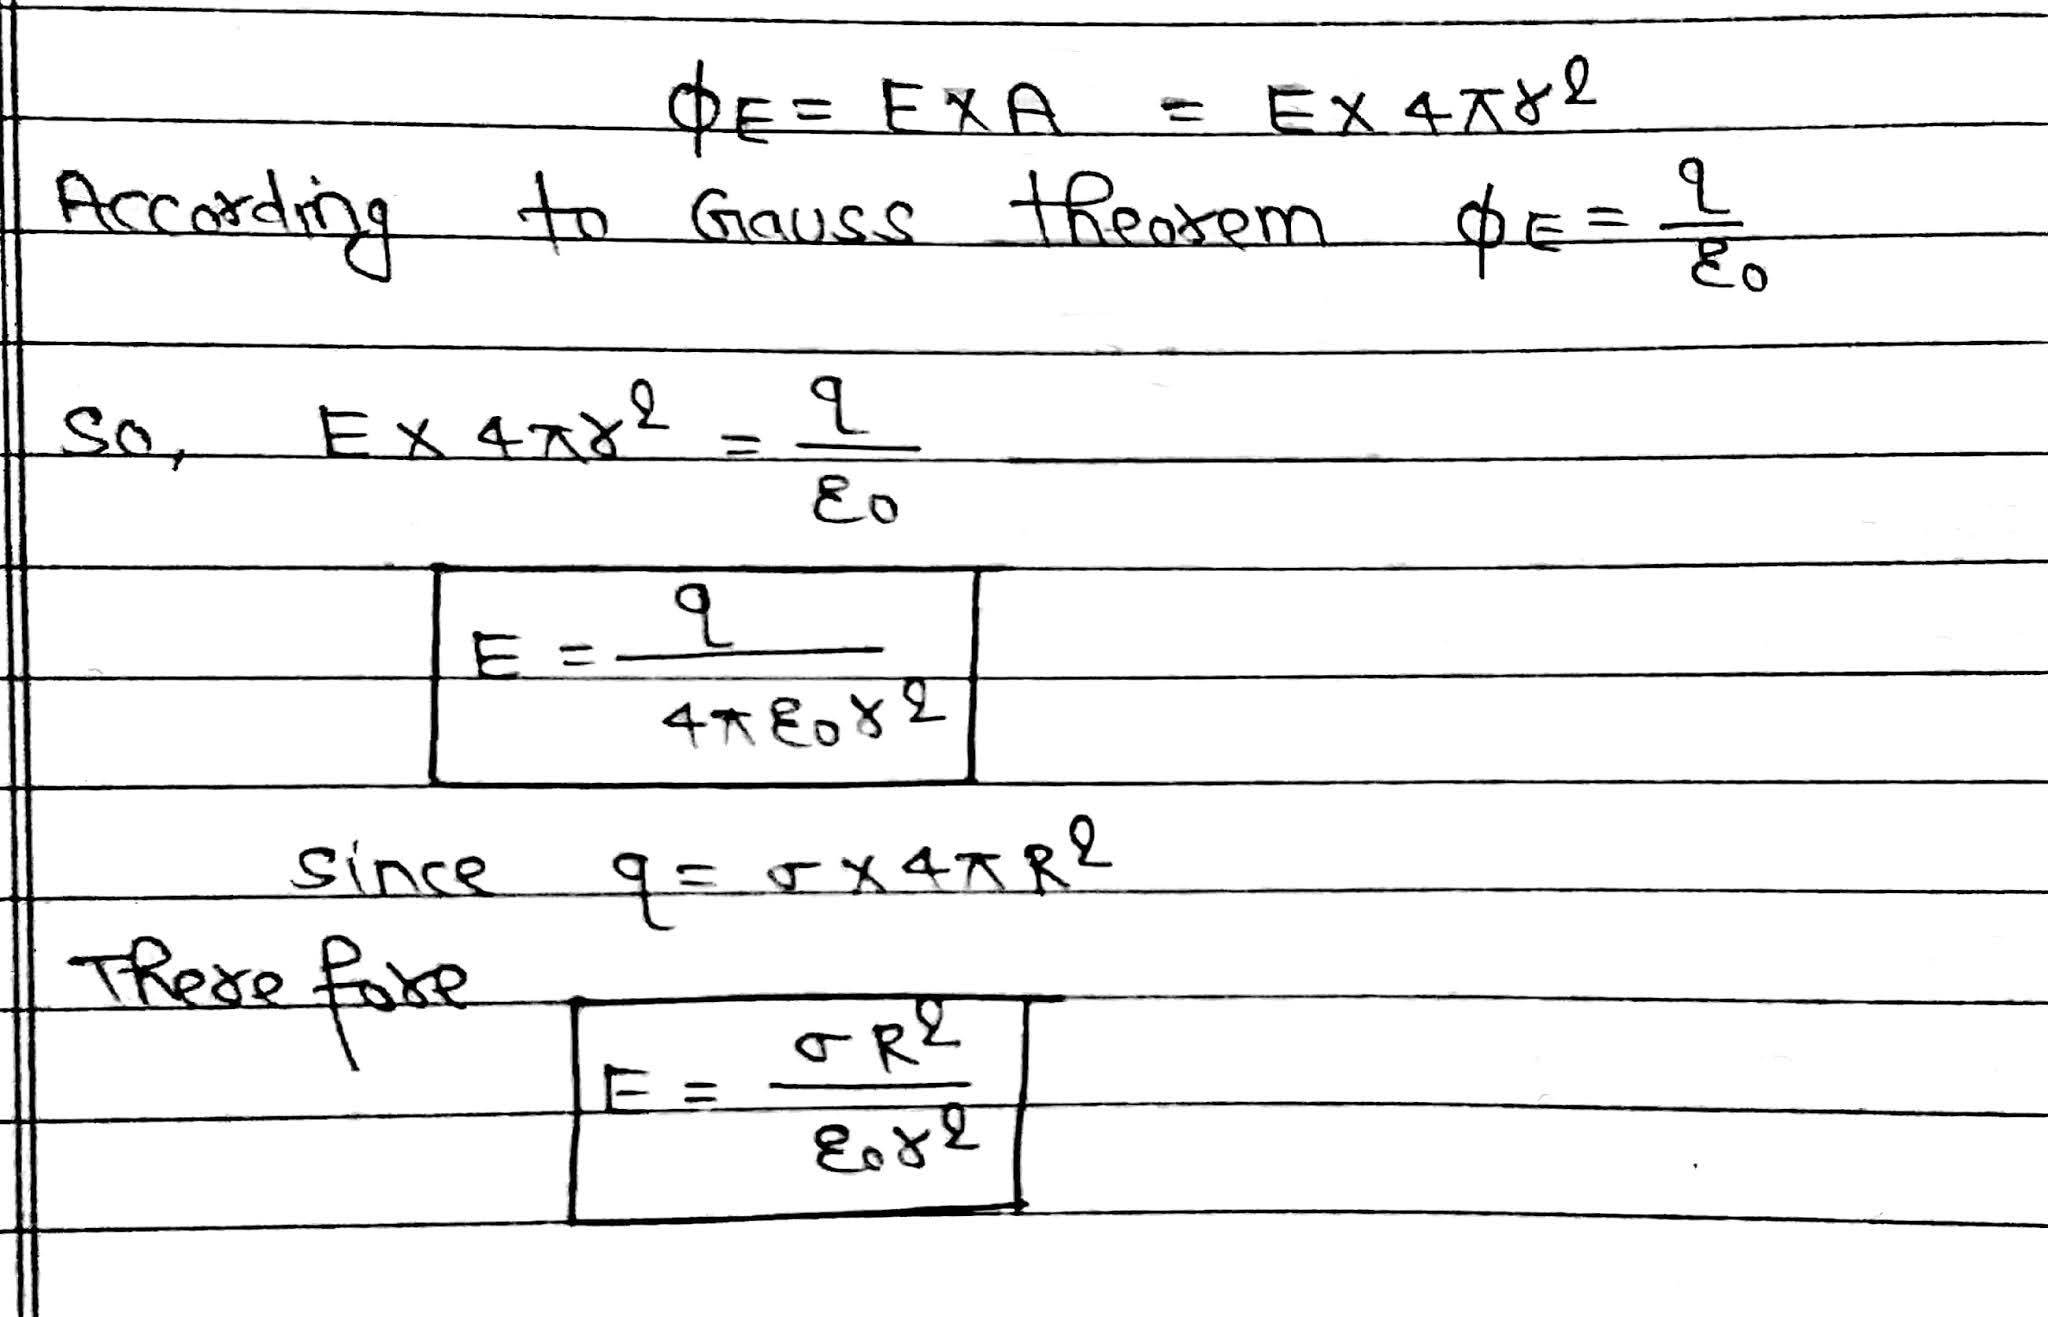 ϕE = E × A = E × 4πr²
According to Gauss theorem ϕE = q/ε₀
So, E × 4πr² = q/ε₀
E = q/4πε₀r²
Since q = σ × 4πR²
There fore
E = σR²/ε₀r²